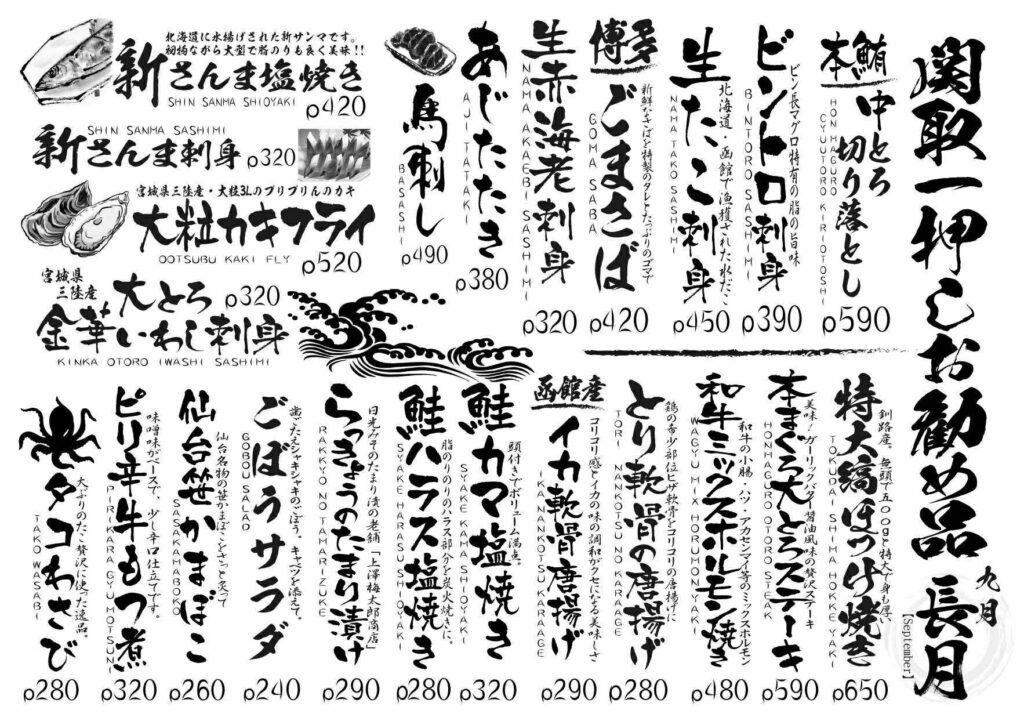 関取一押しお勧め品
九月
長月
【September】
本鮪
中とろ
切り落とし
HONMAGURO
CHYUUTORO KIRIOTOSHI
p590
ビントロ刺身
ビン長マグロ特有の脂の旨味
BINTORO SASHIMI
p390
生たこ刺身
北海道・函館で漁獲された水だこ
NAMA TAKO SASHIMI
p450
博多
ごまさば
新鮮なさばを特製のタレとたっぷりのゴマで
GOMA SABA
p420
生赤海老刺身
NAMA AKAEBI SASHIMI
p320
あじたたき
AJI TATAKI
p380
馬刺し
BASASHI
p490
北海道に水揚げされた新サンマです。
初物ながら大型で脂のりも良く美味!!
新さんま塩焼き
SHIN SANMA SHIOYAKI
p420
SHIN SANMA SASHIMI
新さんま刺身
p320
宮城県三陸産・大粒3Lのプリプリんのカキ
大粒カキフライ
OOTSUBU KAKI FLY
p520
宮城県
三陸産
大とろ
p320
金華いわし刺身
KINKA OTORO IWASHI SASHIMI
特大縞ほっけ焼き
釧路産。無頭で500gと特大で身も厚い
TOKUDAI SHIMA HOKKE YAKI
p650
本まぐろ大とろステーキ
美味!ガーリックバター醤油風味の贅沢ステーキ
HONMAGURO OTORO STEAK
p590
和牛ミックスホルモン焼き
和牛の小腸・ハツ・アカセンマイ等のミックスホルモン
WAGYU MIX HORUMONYAKI
p480
とり軟骨の唐揚げ
鶏の希少部位ヒザ軟骨をコリコリの唐揚げに
TORI NANKOTSU NO KARAAGE
p280
函館産
イカ軟骨唐揚げ
コリコリ感とイカの味の調和がクセになる美味しさ
IKA NANKOTSU KARAAGE
p290
鮭カマ塩焼き
頭付きでボリューム満点。
SYAKE KAMA SHIOYAKI
p320
鮭ハラス塩焼き
脂のりのりのハラス部分を炭火焼きに。
SYAKE HARASU SHIOYAKI
p280
らっきょうのたまり漬け
日光みそのたまり漬の老舗「上澤梅太郎商店」
RAKKYO NO TAMARIZUKE
p290
ごぼうサラダ
歯ごたえシャキシャキのごぼう。キャベツを添えて。
GOBOU SALAD
p240
仙台笹かまぼこ
仙台名物の笹かまぼこをさっと炙って
SASAKAMABOKO
p260
ピリ辛牛もつ煮
味噌味がベースで、少し辛口仕立てです。
PIRIKARA GYU MOTSUNI
p320
タコわさび
大ぶりのたこ贅沢に使った逸品。
TAKO WASABI
p280